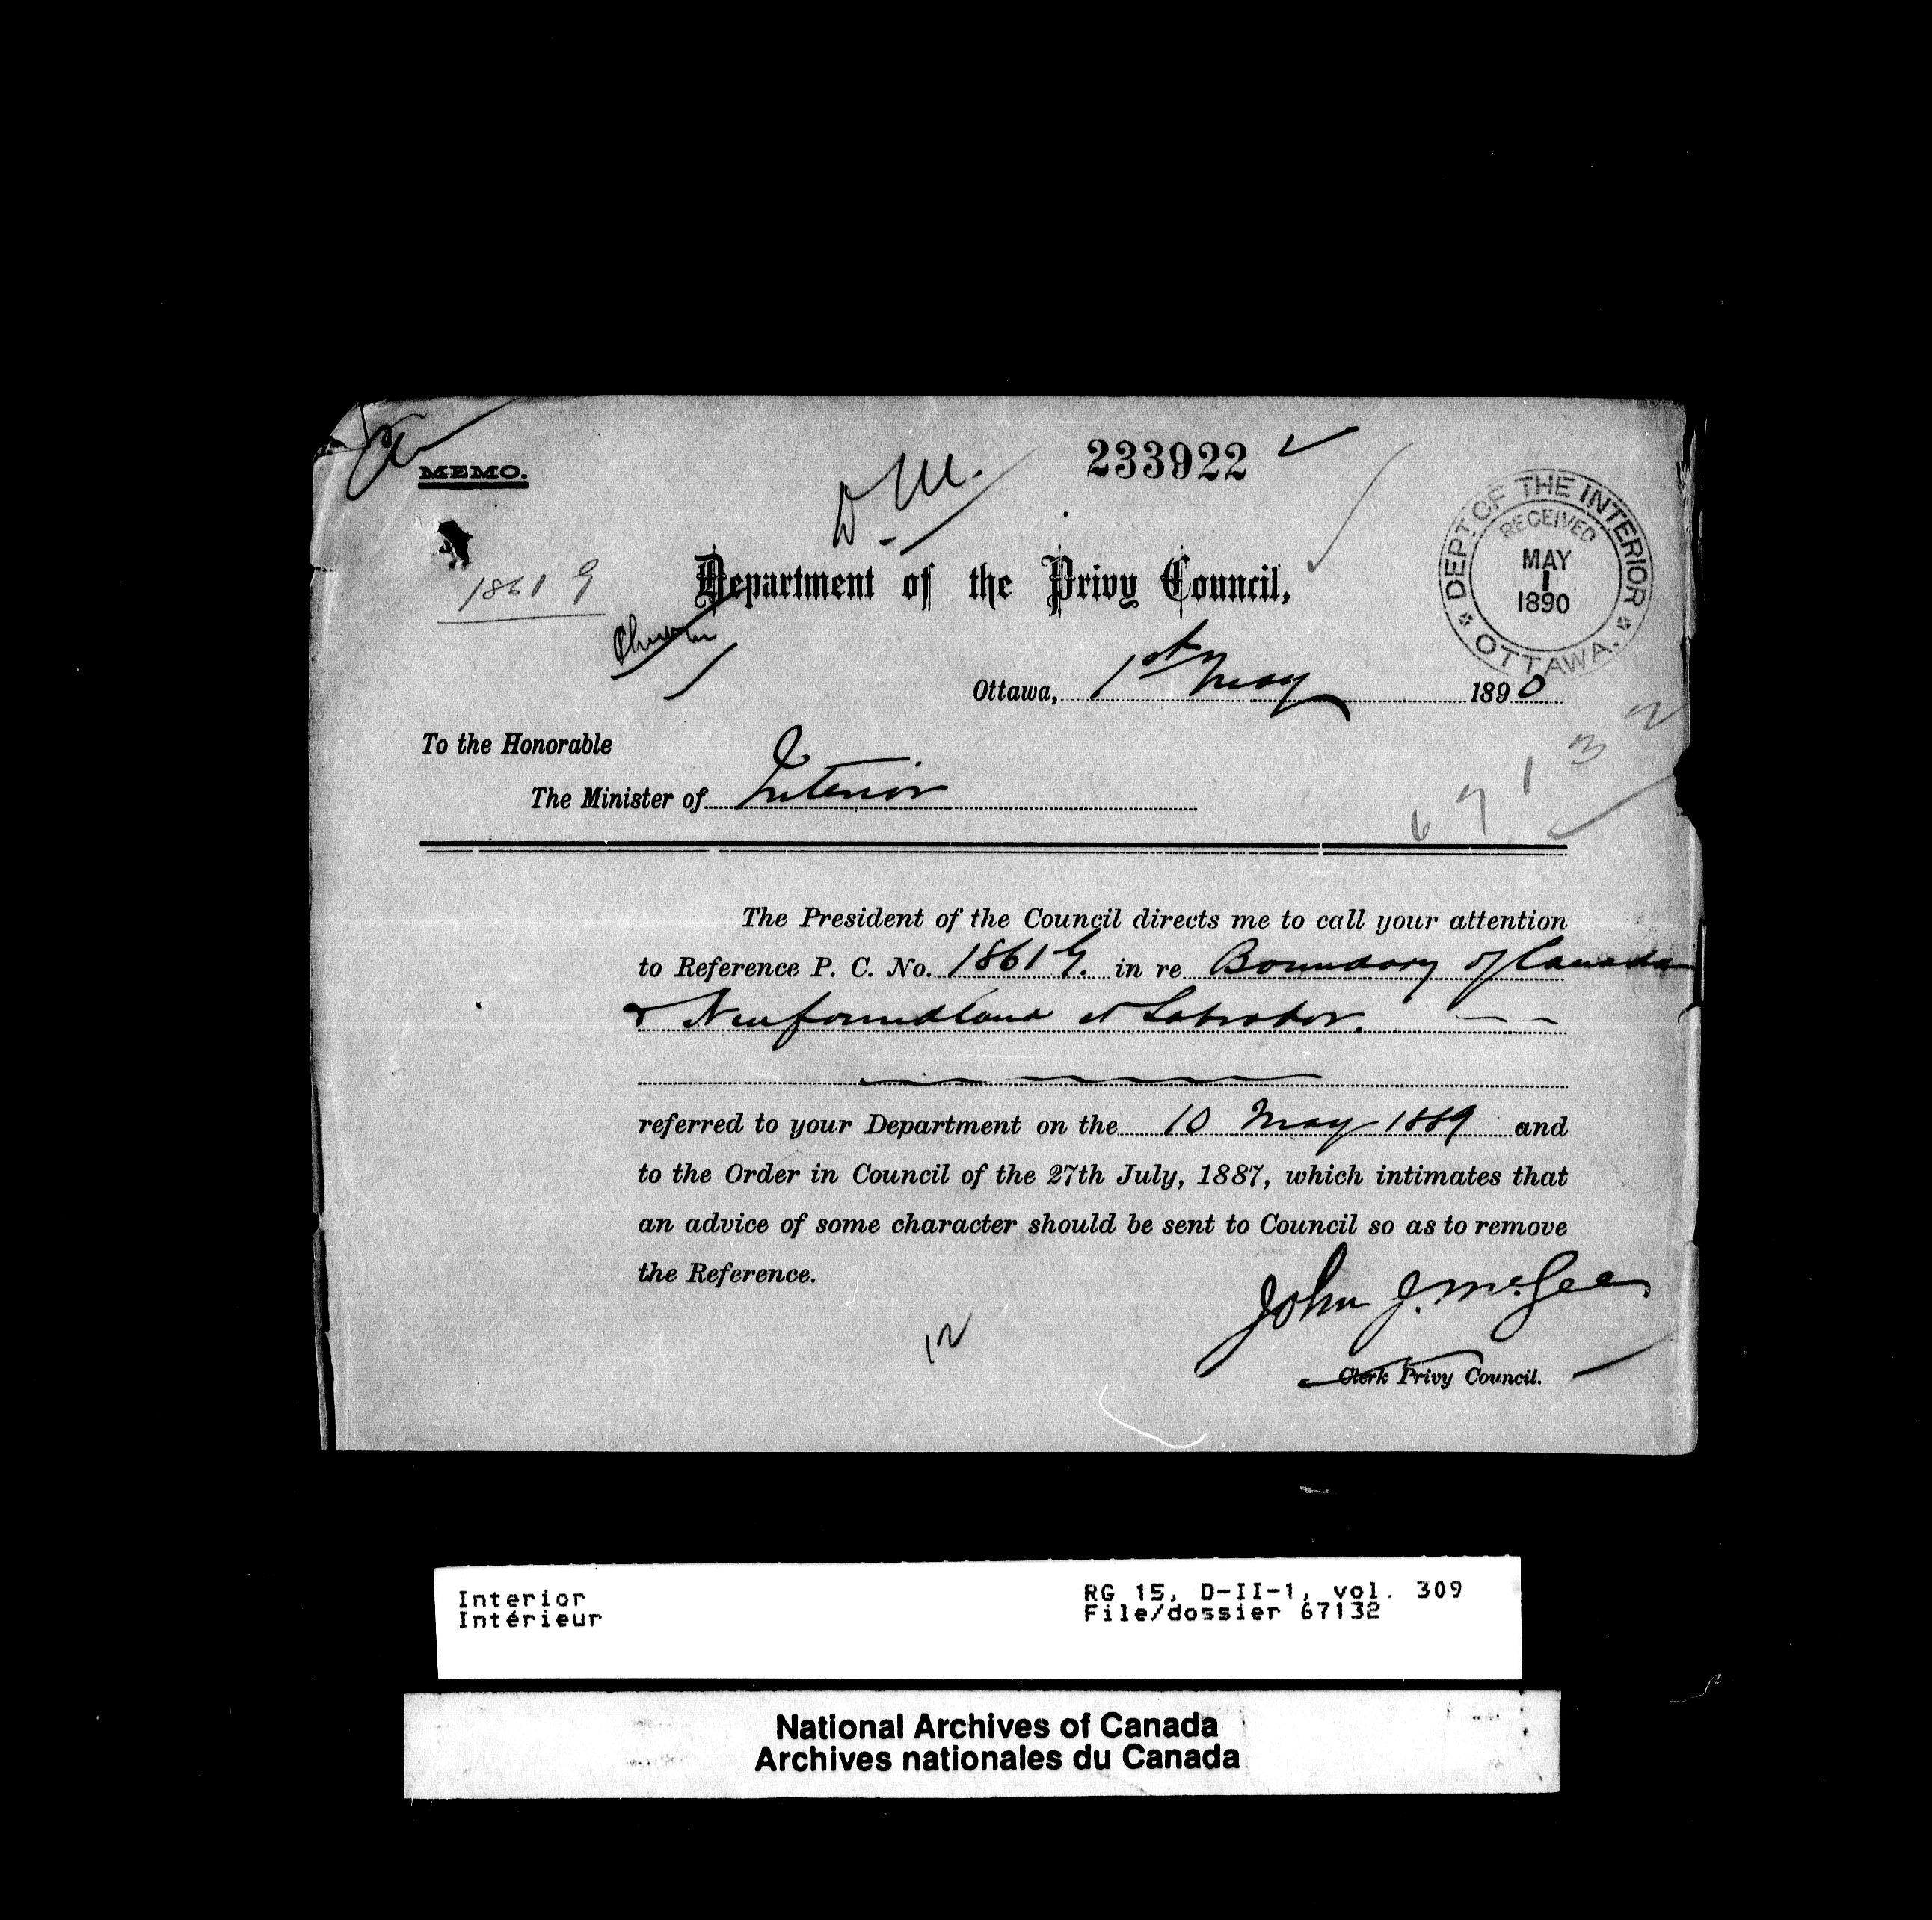 MEMO.
D. M.
233922
DEPT OF THE INTERIOR
RECEIVED
MAY
1
1890
OTTAWA.
1861 G
Department of the Privy Council,
Ottawa, 1st May 1890
To the Honorable
The Minister of Interior
67132
The President of the Council directs me to call your attention
to Reference P. C. No. 1861 G. in re Boundary of Canada
& Newfoundland at Labrador.
referred to your Department on the 10 May 1889 and
to the Order in Council of the 27th July, 1887, which intimates that
an advice of some character should be sent to Council so as to remove
the Reference.
John J. McGee
Clerk Privy Council.
12
Interior
Intérieur
RG 15, D-II-1, vol. 309
File/dossier 67132
National Archives of Canada
Archives nationales du Canada